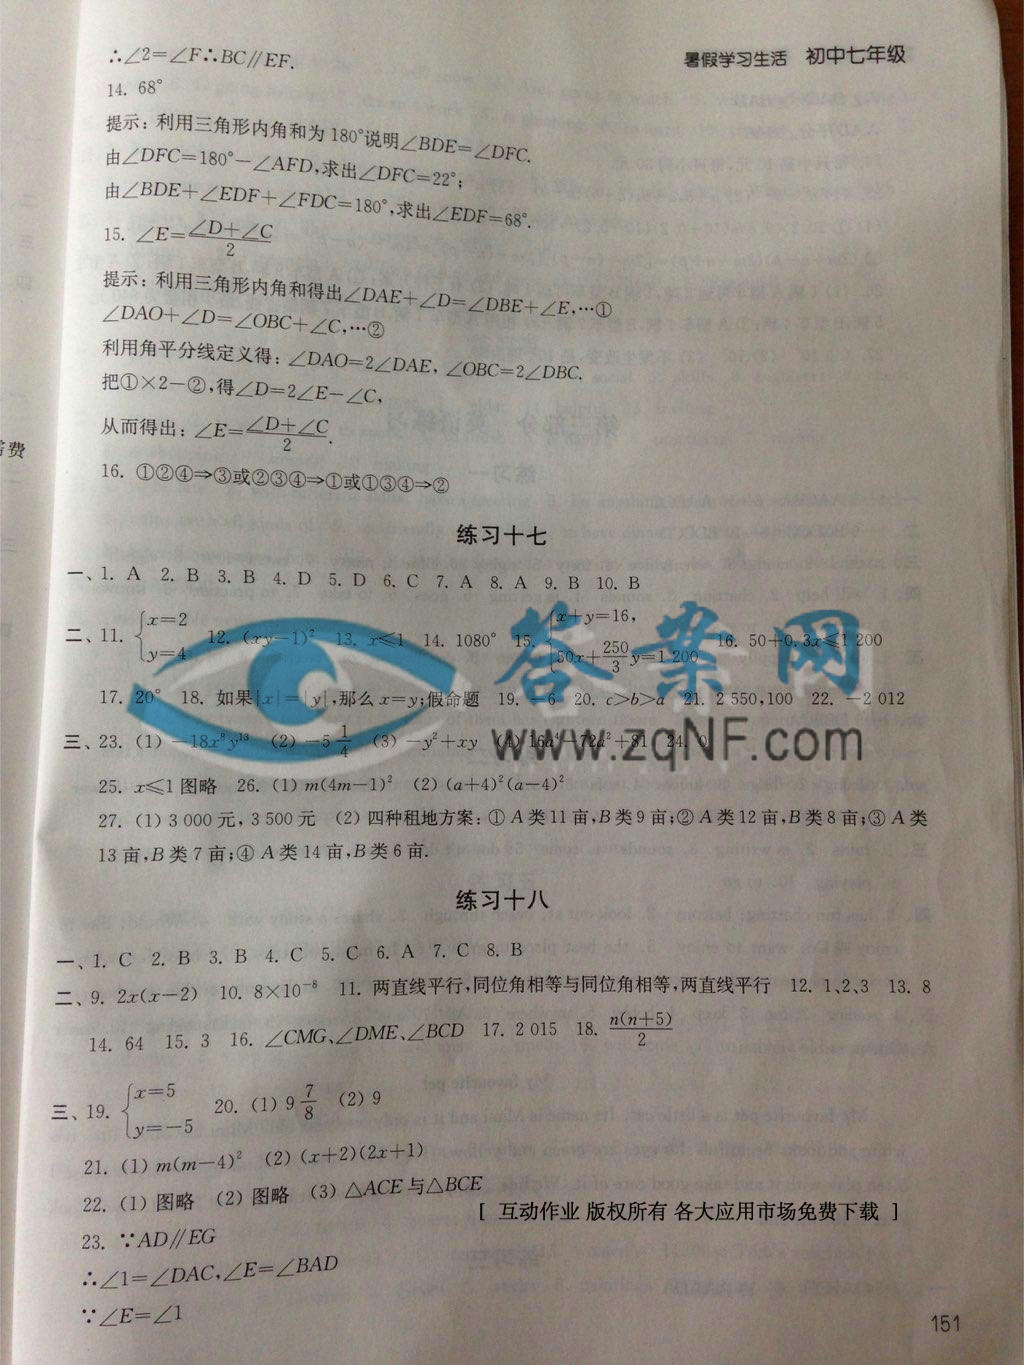 暑假学习生活 初中七年级
∴∠2=∠F∴BC∥EF.
14. 68°
提示:利用三角形内角和为180°说明∠BDE=∠DFC.
由∠DFC=180°-∠AFD,求出∠DFC=22°;
由∠BDE+∠EDF+∠FDC=180°,求出∠EDF=68°.
15. ∠E=(∠D+∠C)/2
提示:利用三角形内角和得出∠DAE+∠D=∠DBE+∠E,…①
∠DAO+∠D=∠OBC+∠C,…②
利用角平分线定义得:∠DAO=2∠DAE, ∠OBC=2∠DBC.
把①×2-②,得∠D=2∠E-∠C,
从而得出:∠E=(∠D+∠C)/2.
16. ①②④⇒③或②③④⇒①或①③④⇒②
练习十七
一、1. A 2. B 3. B 4. D 5. D 6. C 7. A 8. A 9. B 10. B
二、11. {x=2 y=4 12. (xy-1)² 13. x≤1 14. 1080° 15. {x+y=16, 50x+250/3y=1 200 16. 50+0.3x≤1 200
17. 20° 18. 如果|x|=|y|,那么x=y;假命题 19. -6 20. c>b>a 21. 2 550,100 22. -2 012
三、23. (1) -18x⁸y¹³ (2) -5 1/4 (3) -y²+xy (4) 16a⁴-72a²+81 24. 0
25. x≤1图略 26. (1) m(4m-1)² (2) (a+4)²(a-4)²
27. (1) 3 000元, 3 500元 (2) 四种租地方案:① A类11亩,B类9亩;② A类12亩,B类8亩;③ A类
13亩,B类7亩;④ A类14亩,B类6亩.
练习十八
一、1. C 2. B 3. B 4. C 5. C 6. A 7. C 8. B
二、9. 2x(x-2) 10. 8×10⁻⁸ 11. 两直线平行,同位角相等与同位角相等,两直线平行 12. 1、2、3 13. 8
14. 64 15. 3 16. ∠CMG、∠DME、∠BCD 17. 2 015 18. n(n+5)/2
三、19. {x=5 y=-5 20. (1) 9 7/8 (2) 9
21. (1) m(m-4)² (2) (x+2)(2x+1)
22. (1) 图略 (2) 图略 (3) △ACE与△BCE
[ 互动作业 版权所有 各大应用市场免费下载 ]
23. ∵AD∥EG
∴∠1=∠DAC,∠E=∠BAD
∵∠E=∠1
151
答案网
www.zqNF.com
费